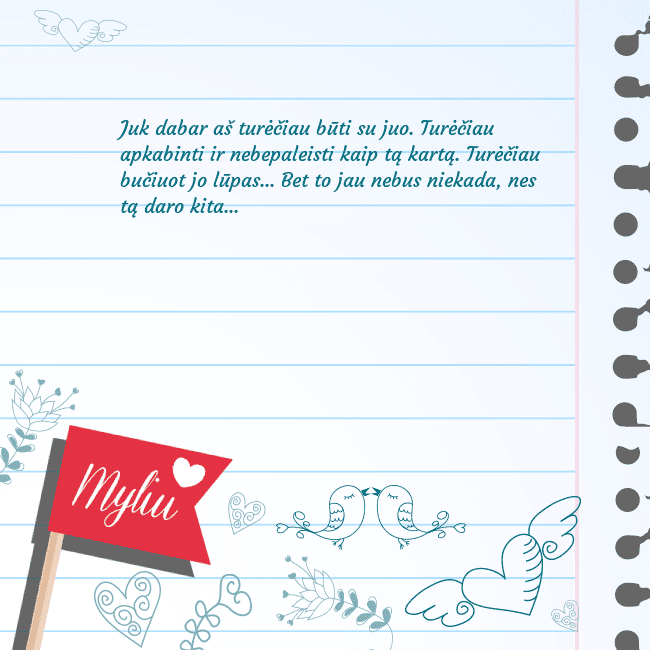 Juk dabar aš turėčiau būti su juo. Turėčiau
apkabinti ir nebepaleisti kaip tą kartą. Turėčiau
bučiuot jo lūpas... Bet to jau nebus niekada, nes
tą daro kita...
Myliu